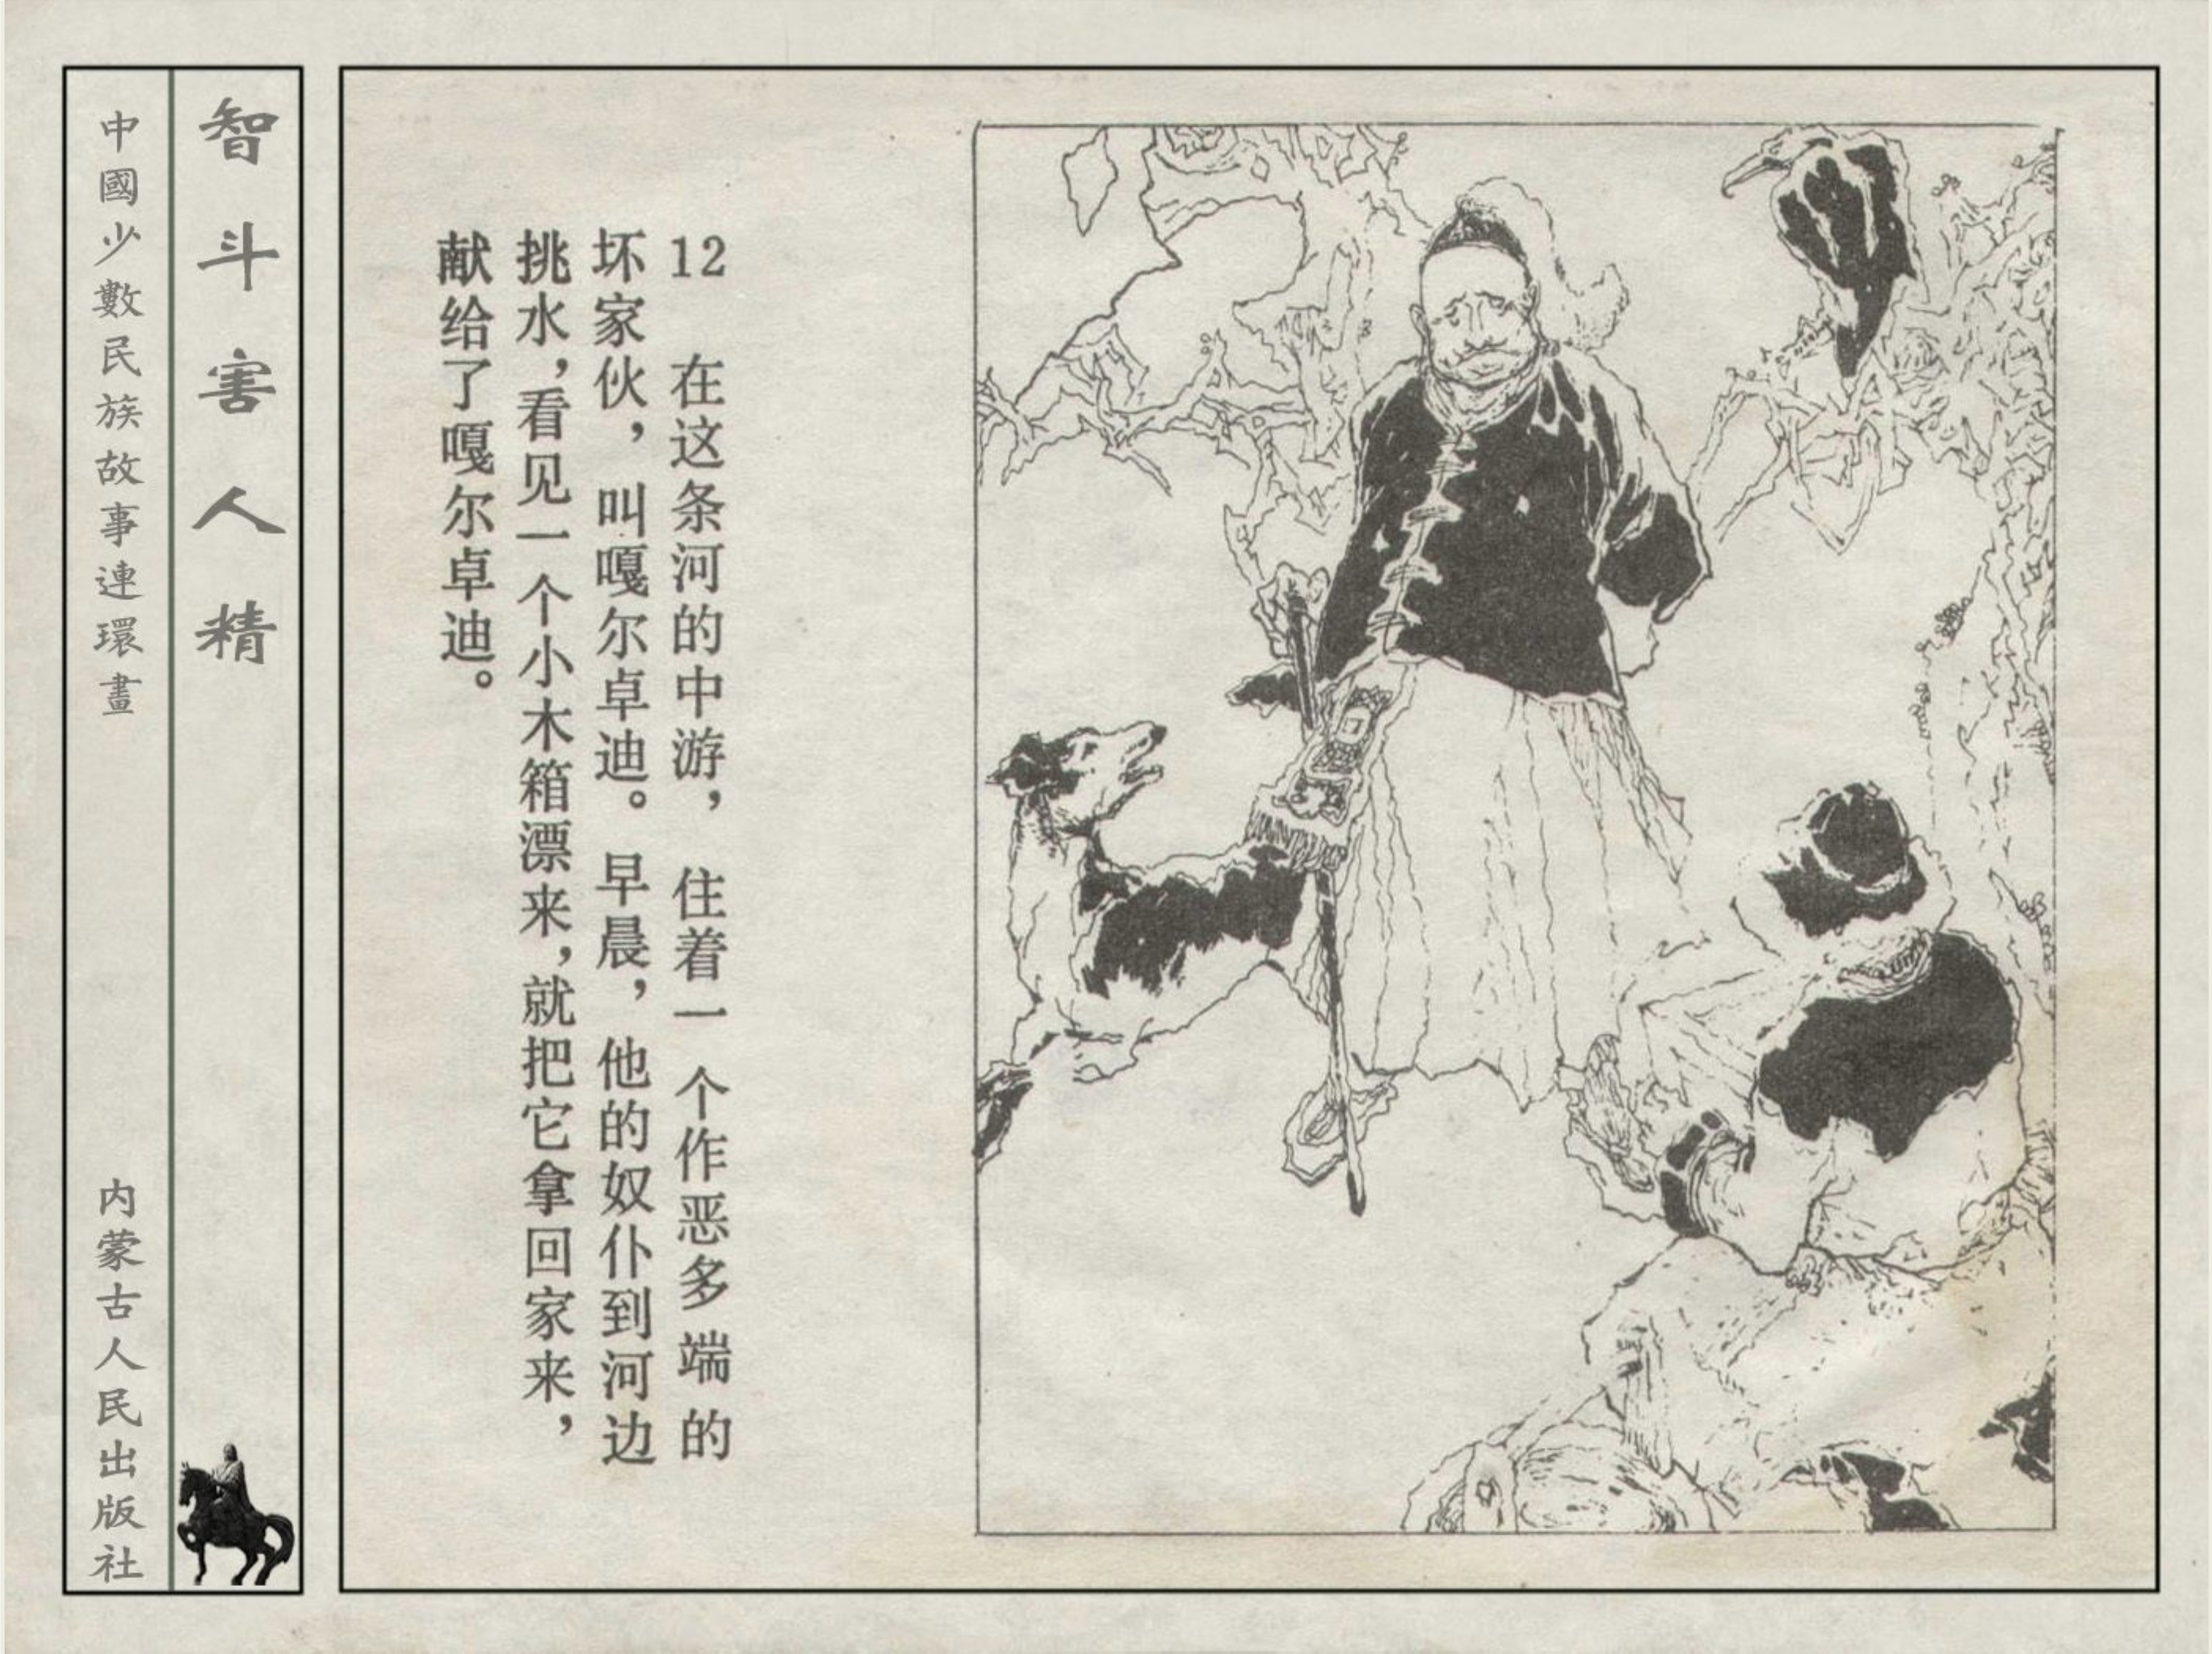 智斗害人精
中國少數民族故事連環畫
内蒙古人民出版社
12 在这条河的中游，住着一个作恶多端的
坏家伙，叫嘎尔卓迪。早晨，他的奴仆到河边
挑水，看见一个小木箱漂来，就把它拿回家来，
献给了嘎尔卓迪。